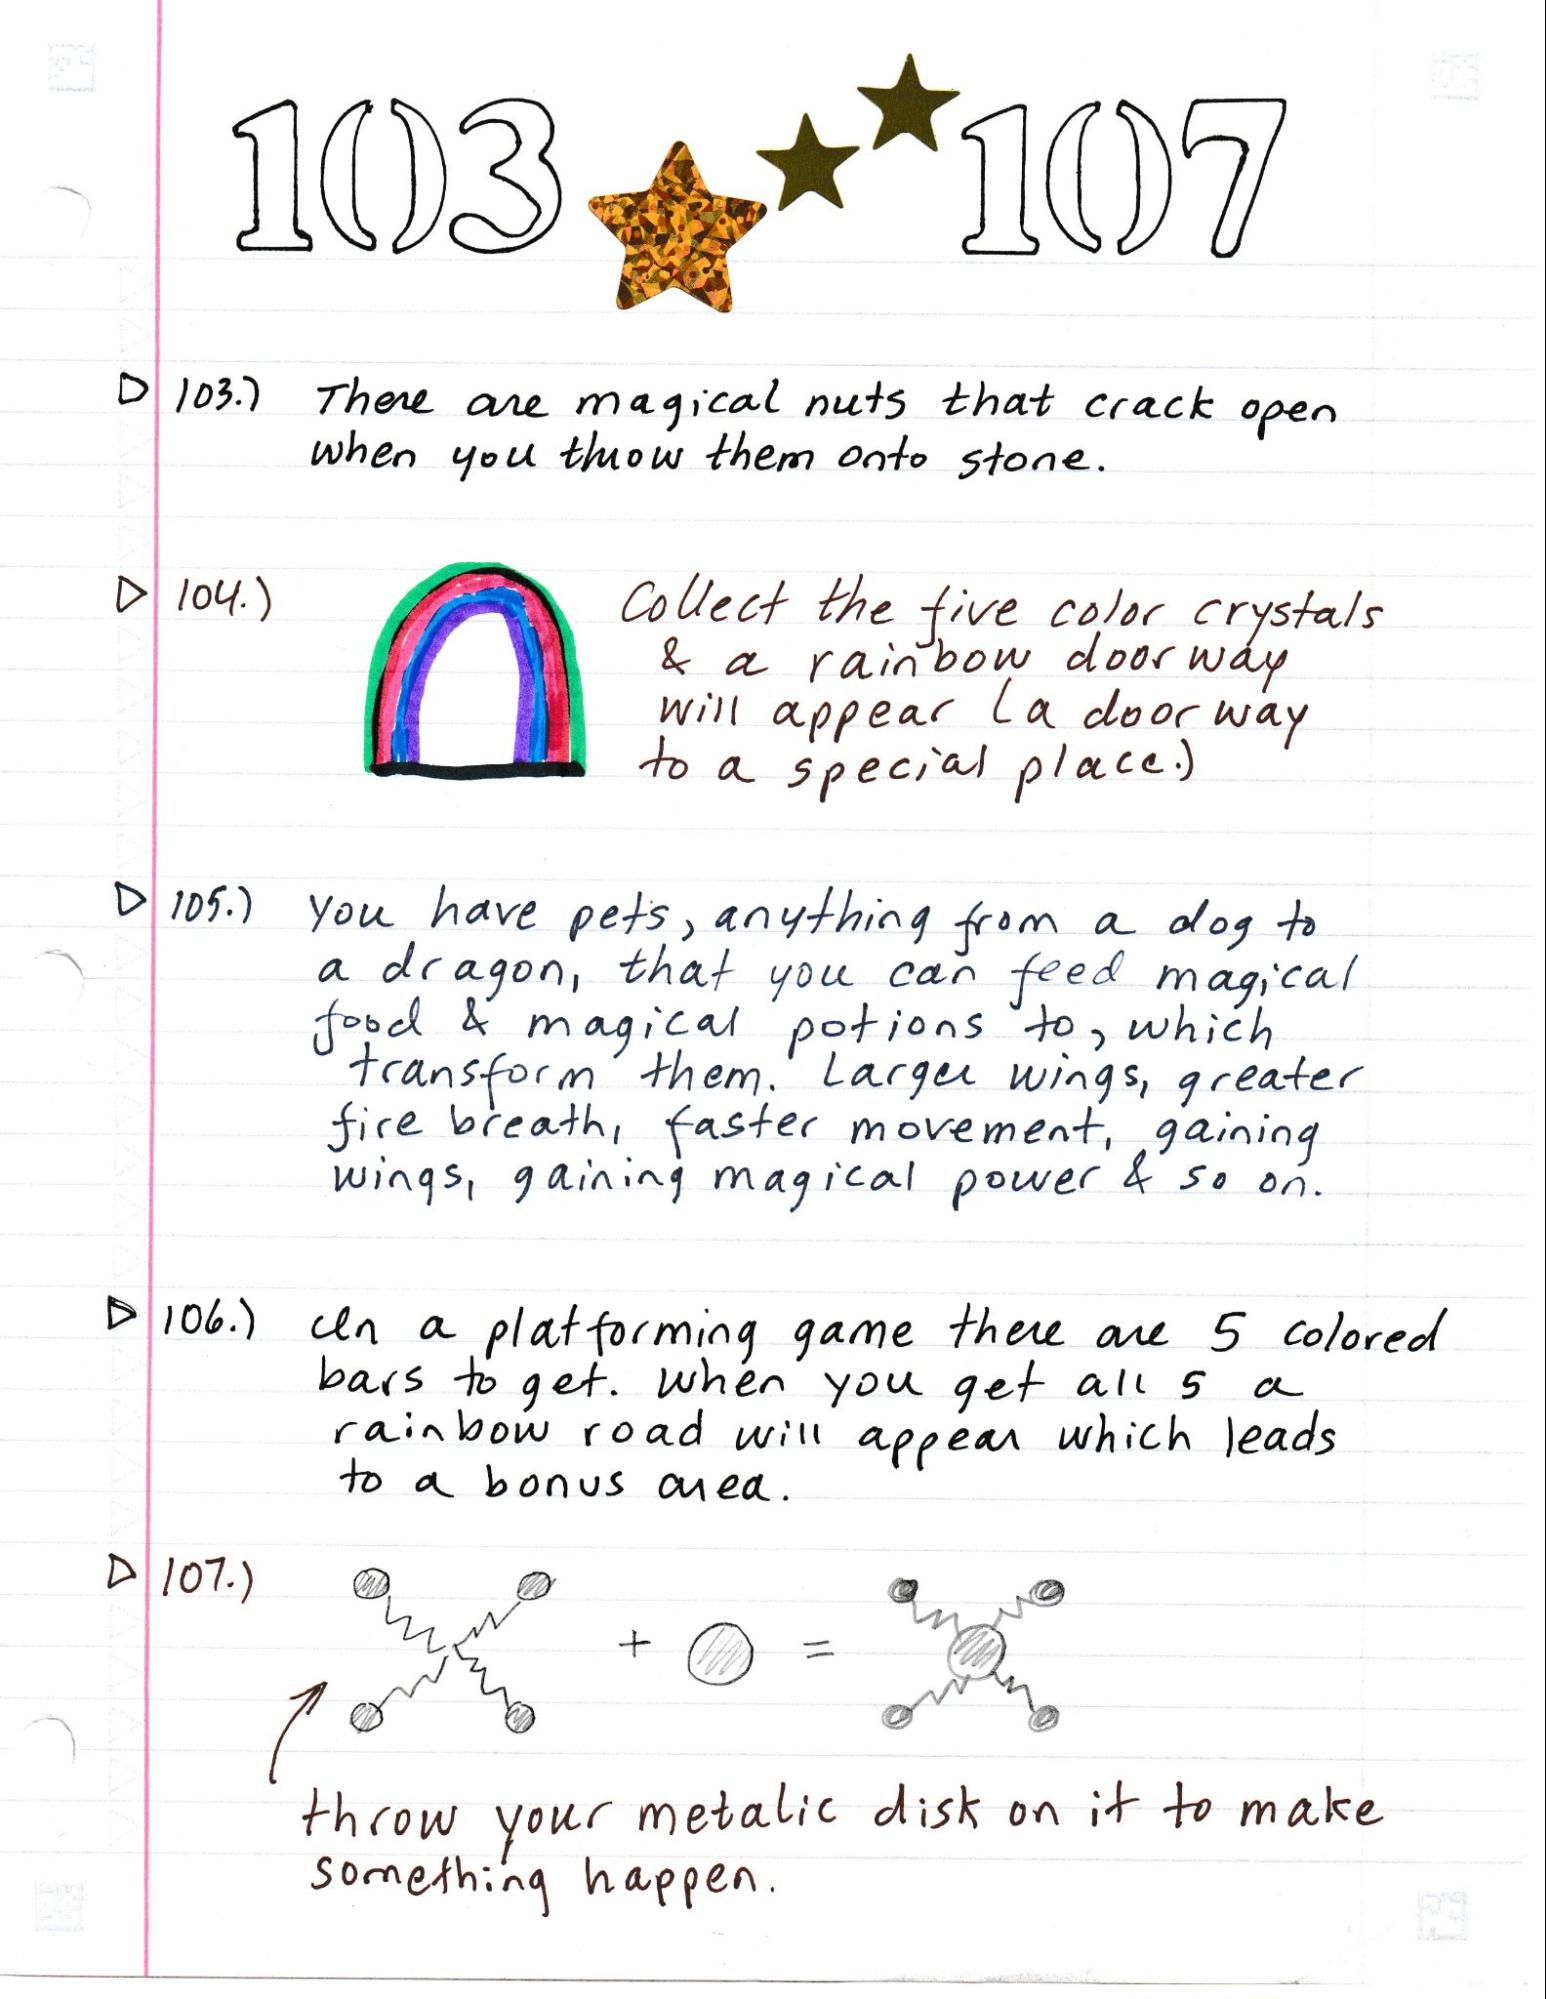 103 107
103.) There are magical nuts that crack open
when you throw them onto stone.
104.) Collect the five color crystals
& a rainbow doorway
will appear (a doorway
to a special place.)
105.) You have pets, anything from a dog to
a dragon, that you can feed magical
food & magical potions to, which
transform them. Larger wings, greater
fire breath, faster movement, gaining
wings, gaining magical power & so on.
106.) In a platforming game there are 5 colored
bars to get. When you get all 5 a
rainbow road will appear which leads
to a bonus area.
107.) + =
throw your metalic disk on it to make
something happen.